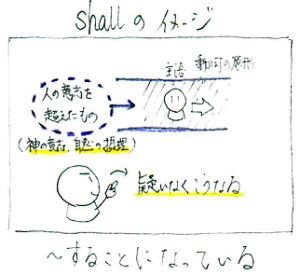 shallのイメージ
主語 動詞の原形
人の意志を
超えたもの
(神の意志、自然の摂理)
疑いなくこうなる
〜することになっている